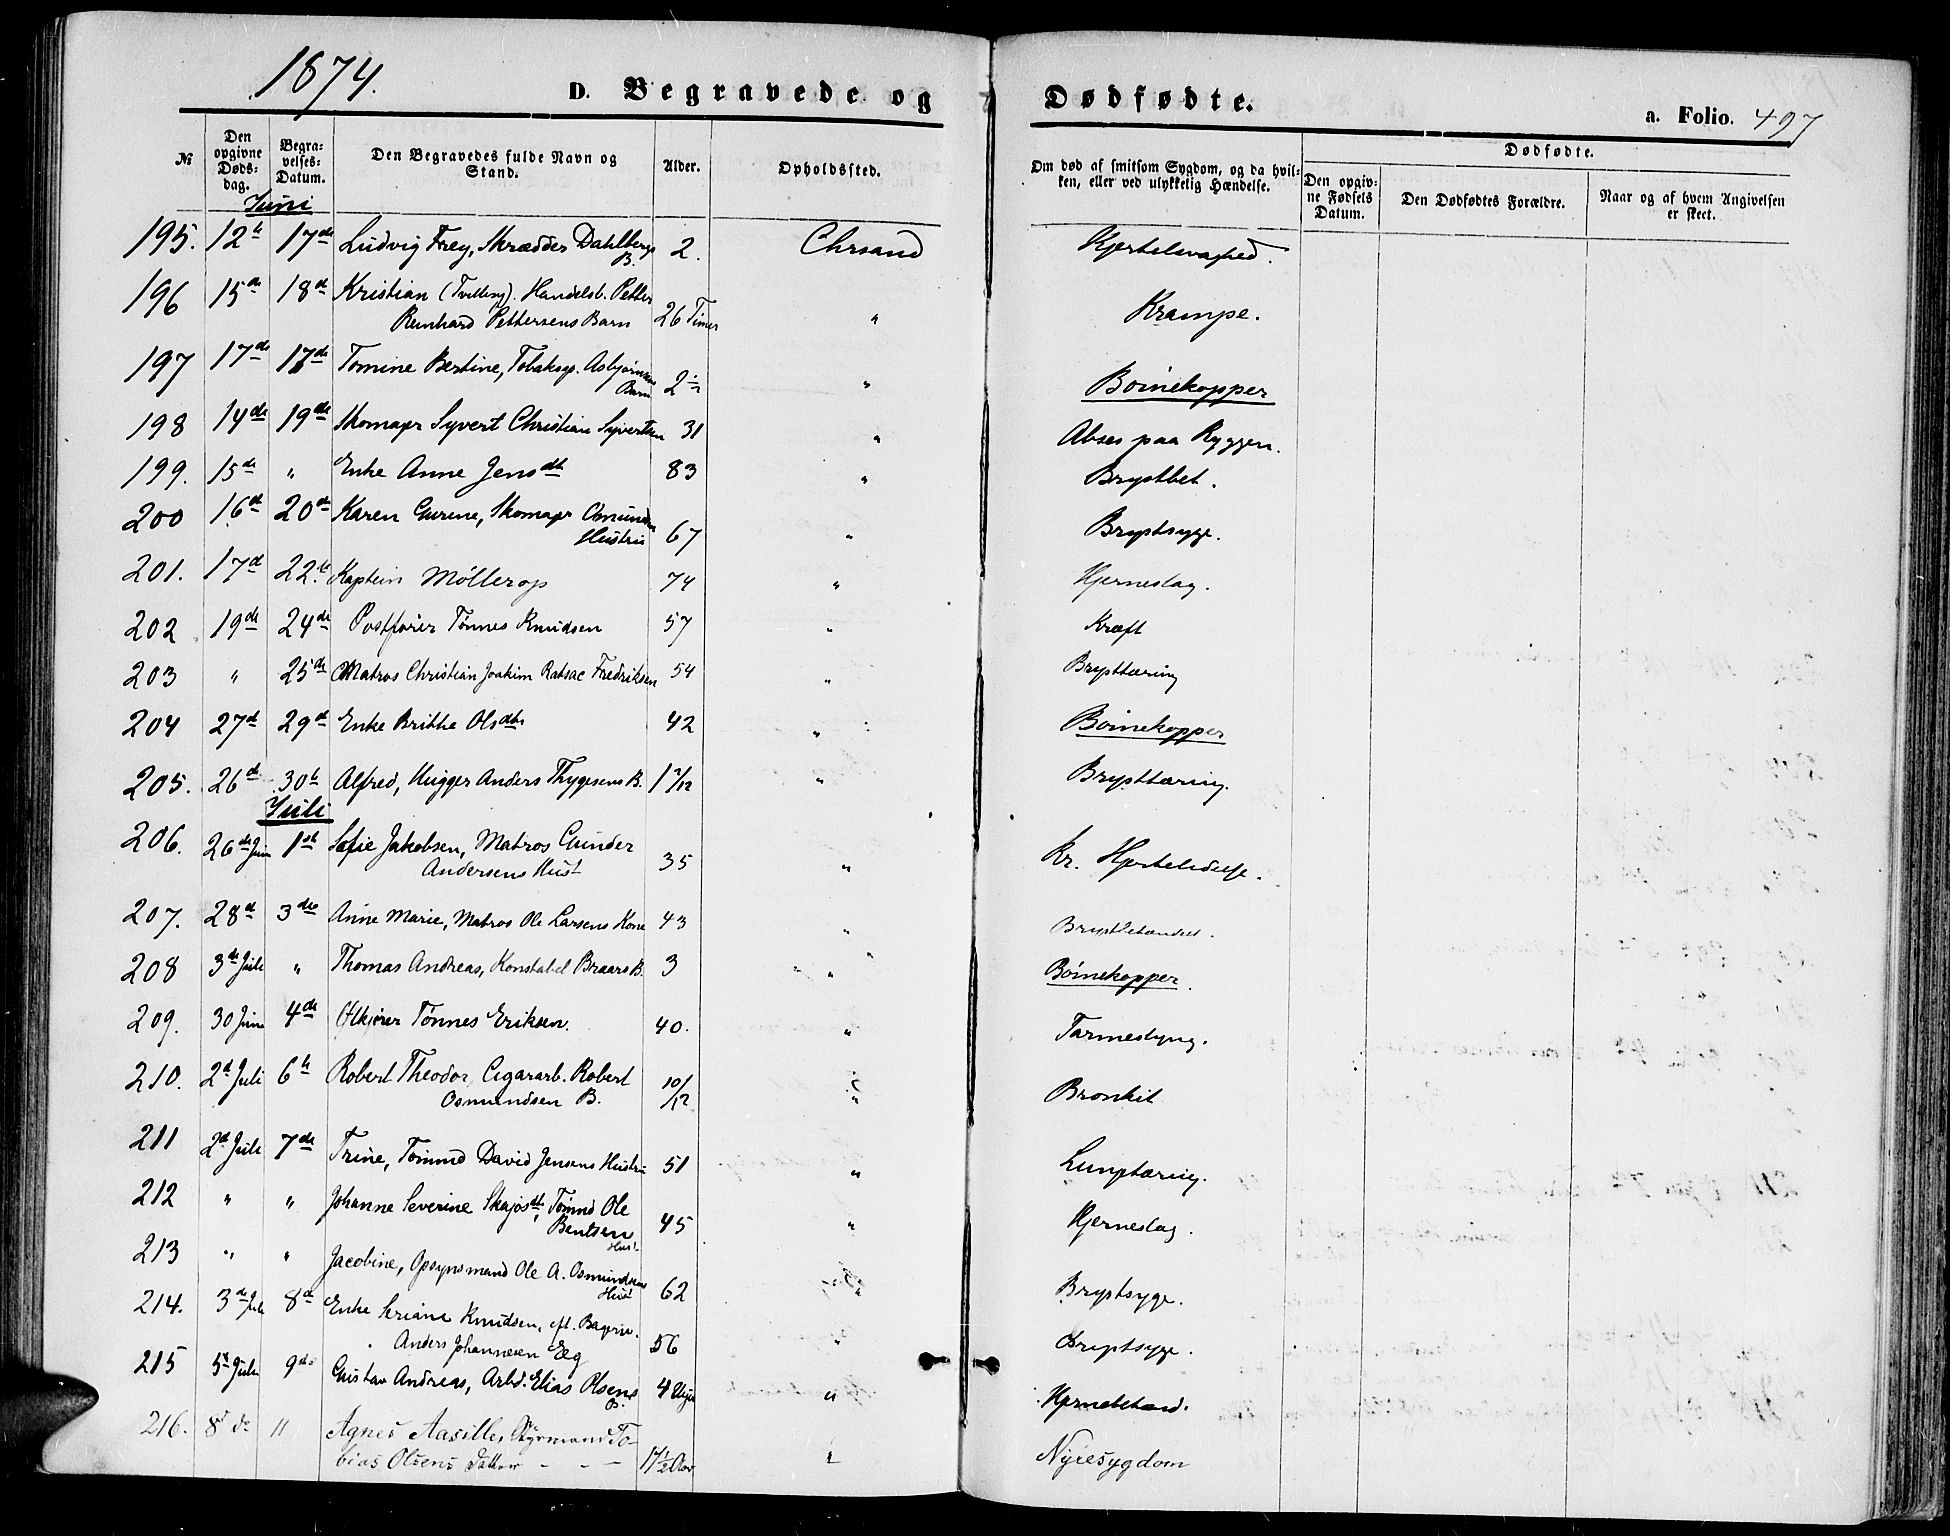 1874.
D. Begravede og Dødfødte.
a. Folio. 497
№
Den opgivne Døds-dag.
Begra-velses-Datum.
Den Begravedes fulde Navn og Stand.
Alder.
Opholdssted.
Om død af smitsom Sygdom, og da hvil-ken, eller ved ulykkelig Hændelse.
Dødfødte.
Den opgiv-ne Fødsels Datum.
Den Dødfødtes Forældre.
Naar og af hvem Angivelsen er skeet.
Juni
195. 12te 17de Ludvig Frey, Skrædder Dahlbergs B. 2. Chrsand Kjertelsvaghed.
196 15de 18de Kristian (Tvilling). Handelsb. Petter
Reinhard Pettersens Barn 26 Timer " Krampe.
197 17de 17de Tomine Bertine, Tobaksp. Asbjørnsens
Barn 2 " Børnekopper
198 14de 19de Skomager Syvert Christian Syvertsen 31 " Abses paa Ryggen.
199. 15de " Enke Anne Jensdt 83 " Brystbet.
200 16de 20de Karen Gurine, Skomager Osmundsen
Hustru 67 " Brystsyge.
201. 17d 22de Kaptein Möllerop 74 " Hjerneslag.
202 19de 24de Postfører Tønnes Knudsen 57 " Kræft
203 " 25de Matros Christian Joakim Fredriksen 54 " Brysttæring
204 27d 29d Enke Brithe Olsdtr 42 " Børnekopper
205. 26d 30te Alfred, Hugger Anders Thygesens B. 1 2/12 " Brysttæring.
Juli
206. 26de Juni 1ste Sofie Jakobsen, Matros Gunder
Andersens Hust 35 " Kr. Hjertelidelse.
207. 28d 3die Anne Marie, Matros Ole Larsens Kone 43 " Brystbetændelse.
208 3de Juli " Thomas Andreas, Konstabel Braars B. 3 " Børnekopper.
209. 30 Juni 4de Tønnes Eriksen. 40. " Tarmeslyng.
210. 2d Juli 6te Robert Theodor, Cigararb. Robert
Osmundsen B. 10/12 " Bronkit
211 2d Juli 7de Trine, Tømmd David Jensens Hustru 51 " Lungtæring.
212 " " Johanne Severine Skajosdt, Tømmd Ole
Bentsen
Hust. 45 " Hjerneslag.
213 " " Jacobine, Opsynsmand Ole A. Osmundsens
Hust 62 " Brystsyge.
214. 3de Juli 8d Enke Seriane Knudsen, eft. Bagerm.
Anders Johannesen Eeg 56 " Brystsyge.
215 5te Juli 9de Gustav Andreas, Arbd. Elias Olsens
B. 4 Uger " Hjernebetænd.
216. 8d do 11 Agnes Aasille, Styrmand To-
bias Olsens Datter - - - 17½ Aar " Nyresygdom